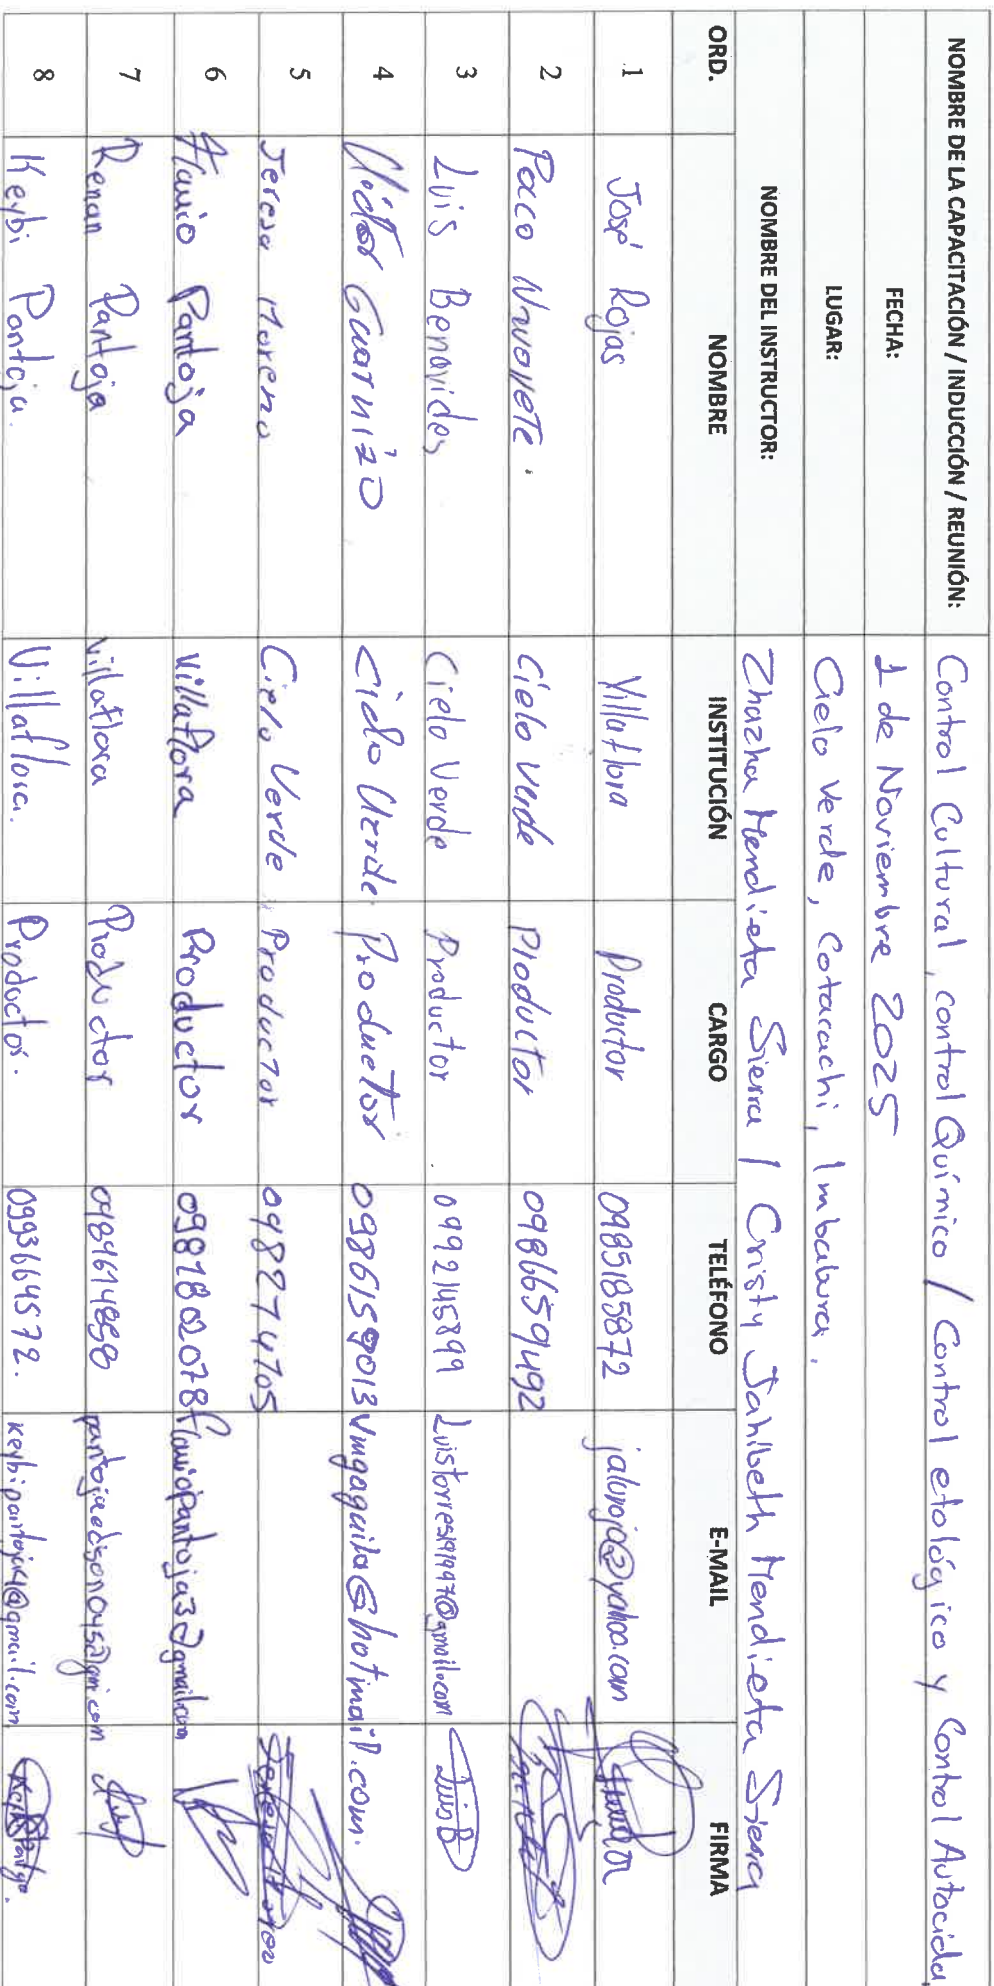 NOMBRE DE LA CAPACITACIÓN / INDUCCIÓN / REUNIÓN: Control Cultural, control Químico / Control etológico y Control Autocida
FECHA: 1 de Noviembre 2025
LUGAR: Cielo Verde, Cotacachi, Imbabura.
NOMBRE DEL INSTRUCTOR: Zhazha Mendieta Sierra / Cristy Jahibeth Mendieta Sierra
ORD. NOMBRE INSTITUCIÓN CARGO TELÉFONO E-MAIL FIRMA
1 José Rojas Villaflora Productor 0985185872 jaluroja@yahoo.com
2 Paco Navarrete. Cielo Verde Productor 0986659492
3 Luis Benavides Cielo Verde Productor 0992145899 Luistorres19997@gmail.com Luis B
4 Víctor Guarnizo Cielo Verde Productor 0986159013 Vmgaguila@hotmail.com.
5 Teresa Moreno Cielo Verde Productor 0988774705
6 Flavio Pantoja Villaflora Productor 0981802078 flaviopantoja3@gmail.com
7 Renan Pantoja Villaflora Productor 0989614898 pantojaedison045@gmi.com
8 Keybi Pantoja. Villaflora. Productor. 0993664572. keybipantoja4@gmail.com